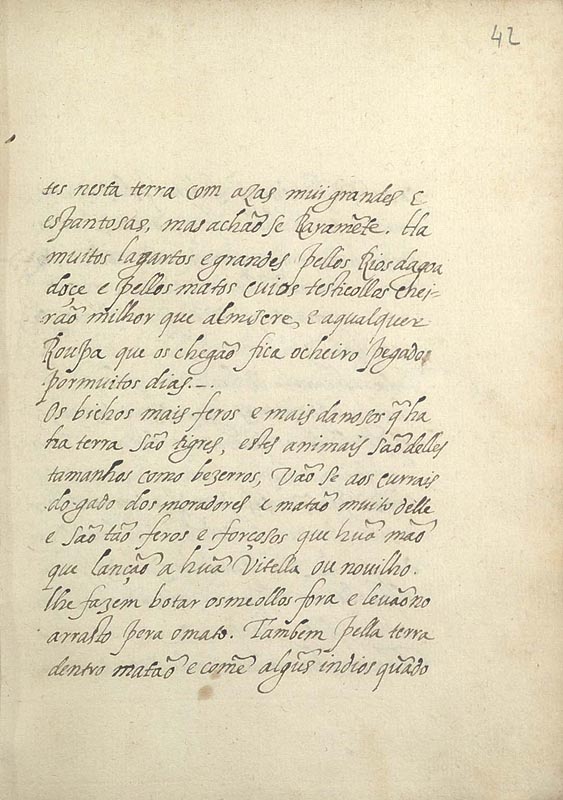 42
tes nesta terra com azas mui grandes E
espantosas, mas achão se Raramẽte. Ha
muitos lagartos e grandes pellos Rios dagoa
doçe e pellos matos cuios testicollos chei-
rão milhor que almiscre, E aqualquer
Roupa que os chegão fica ocheiro pegado
pormuitos dias.-.
Os bichos mais feros e mais danosos q̃ ha
na terra são tigres, estes animais são delles
tamanhos como bezerros, Vão se aos currais
do gado dos moradores e matão muito delle
e são tão feros e forçosos que huã mão
que lanção a huã Vitella ou novilho.
lhe fazem botar osmeollos fora e levãono
arrasto pera omato. Tambem pella terra
dentro matão e comẽ algũs indios quãdo